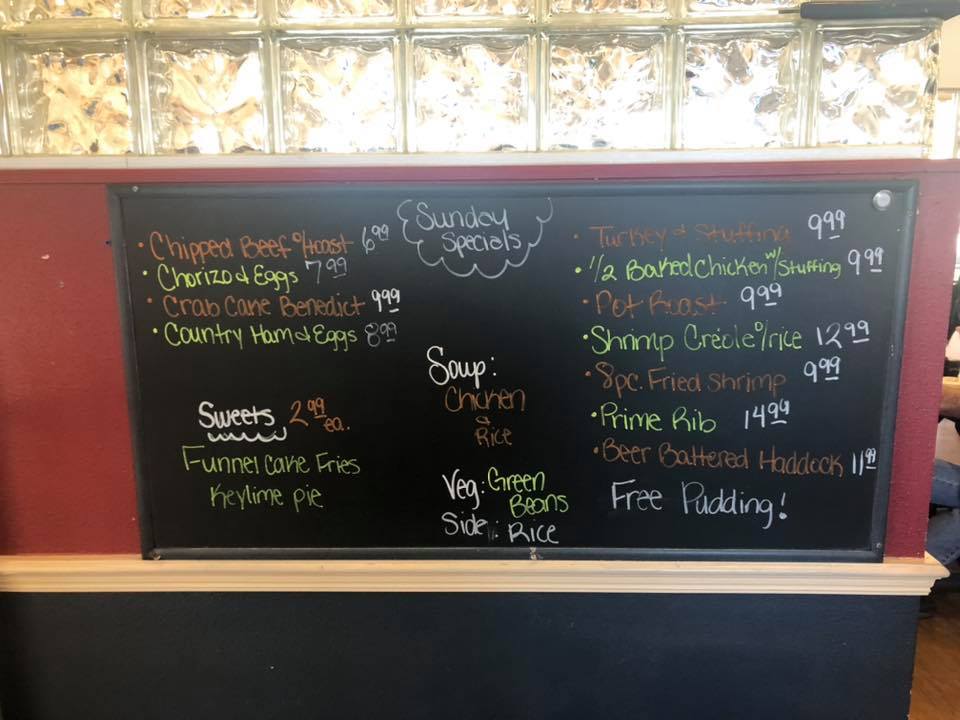 Sunday
Specials
• Chipped Beef o/toast 6.99
• Chorizo & Eggs 7.99
• Crab Cake Benedict 9.99
• Country Ham & Eggs 8.99
Sweets 2.99 ea.
Funnel Cake Fries
Keylime pie
Soup:
Chicken
&
Rice
Veg: Green
Beans
Side: Rice
• Turkey & Stuffing 9.99
• 1/2 Baked Chicken w/Stuffing 9.99
• Pot Roast 9.99
• Shrimp Creole o/rice 12.99
• 8pc. Fried Shrimp 9.99
• Prime Rib 14.99
• Beer Battered Haddock 11.99
Free Pudding!